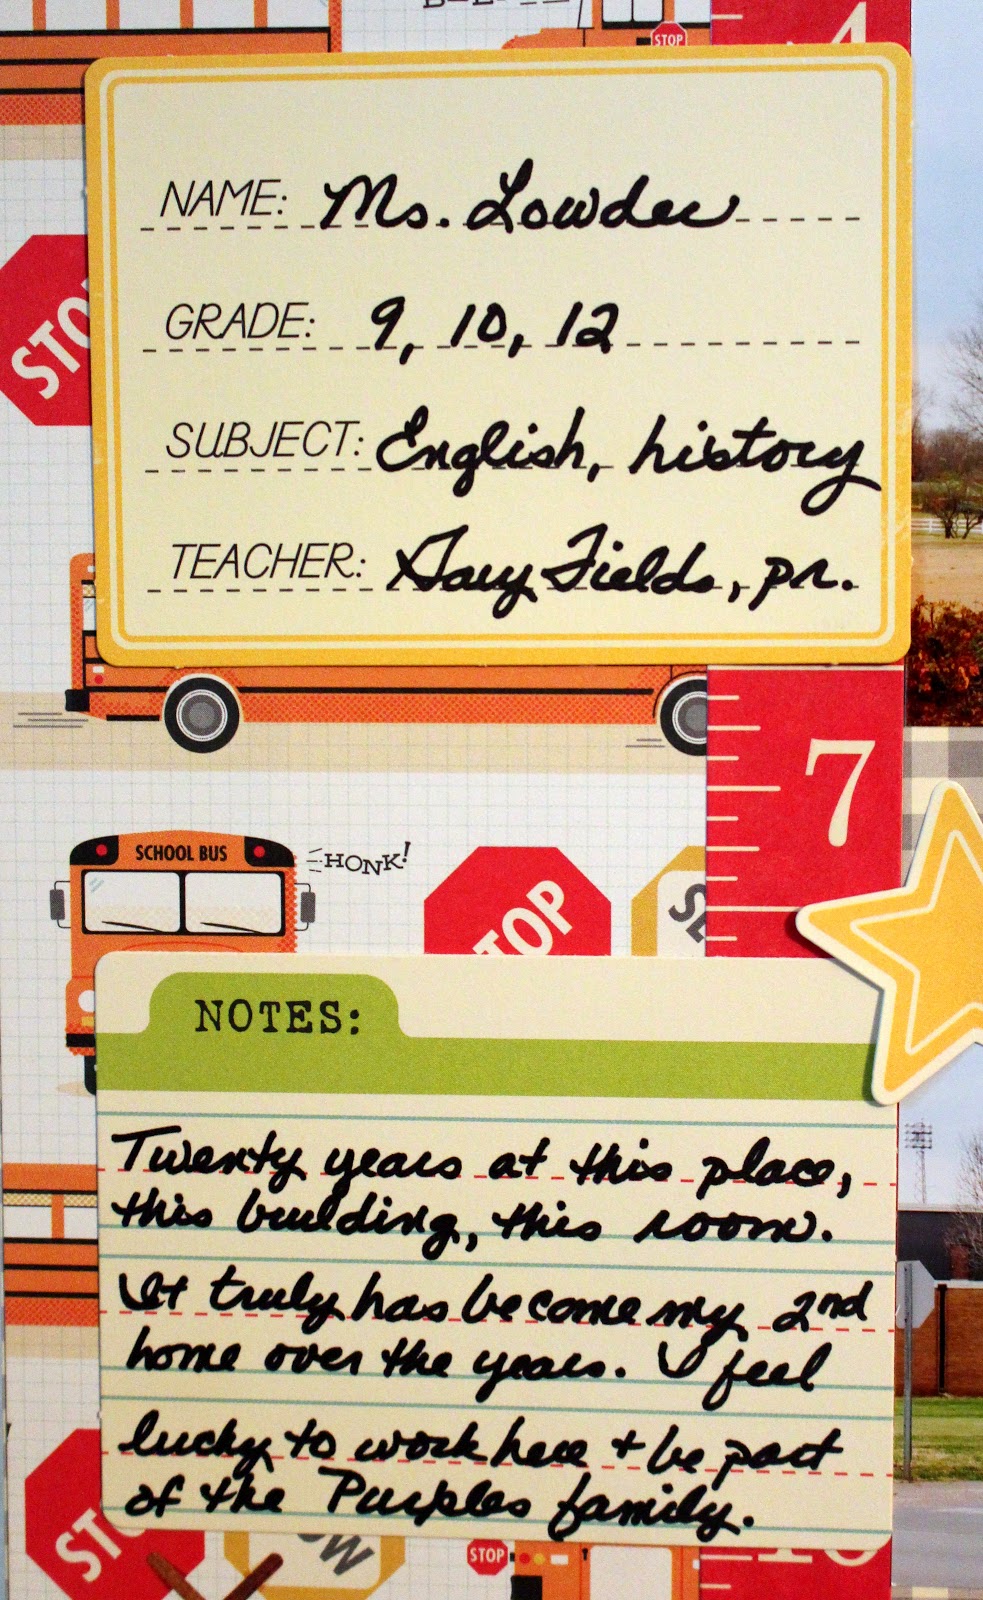 STOP
4
NAME: Ms. Lowder
STOP
GRADE: 9, 10, 12
SUBJECT: English, history
TEACHER: Gary Fields, pr.
7
SCHOOL BUS
HONK!
STOP
NOTES:
Twenty years at this place,
this building, this room.
It truly has become my 2nd
home over the years. I feel
lucky to work here + be part
of the Purples family.
STOP